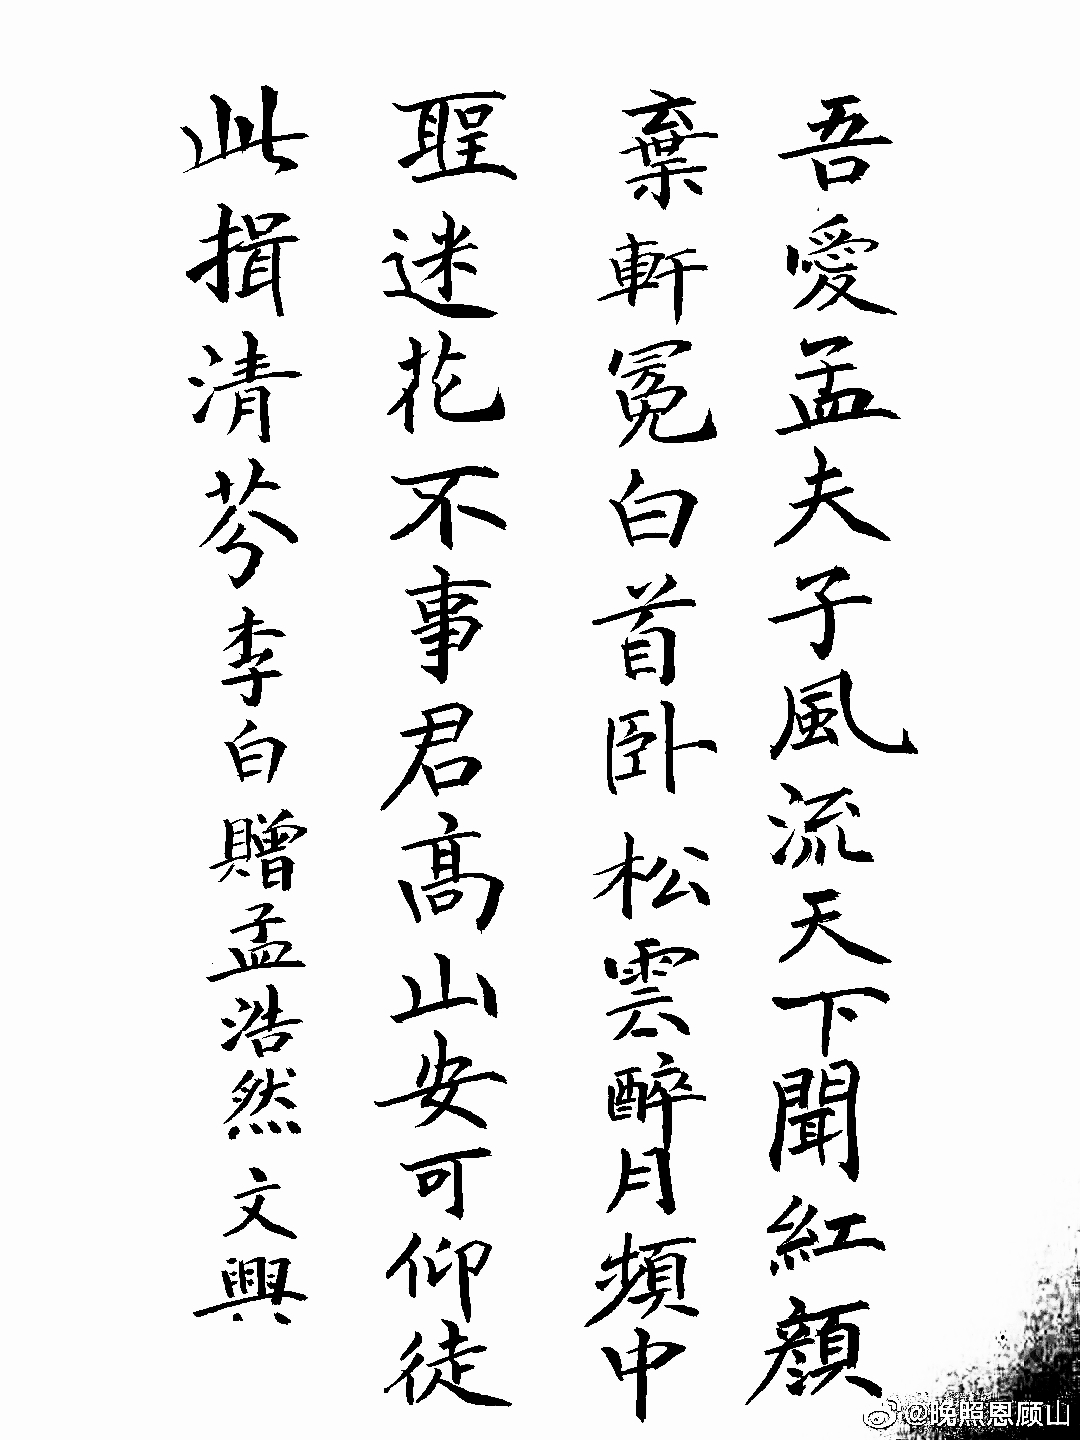 吾愛孟夫子風流天下聞紅顔
棄軒冕白首卧松雲醉月頻中
聖迷花不事君高山安可仰徒
此揖清芬李白贈孟浩然文興
@晚照恩顾山